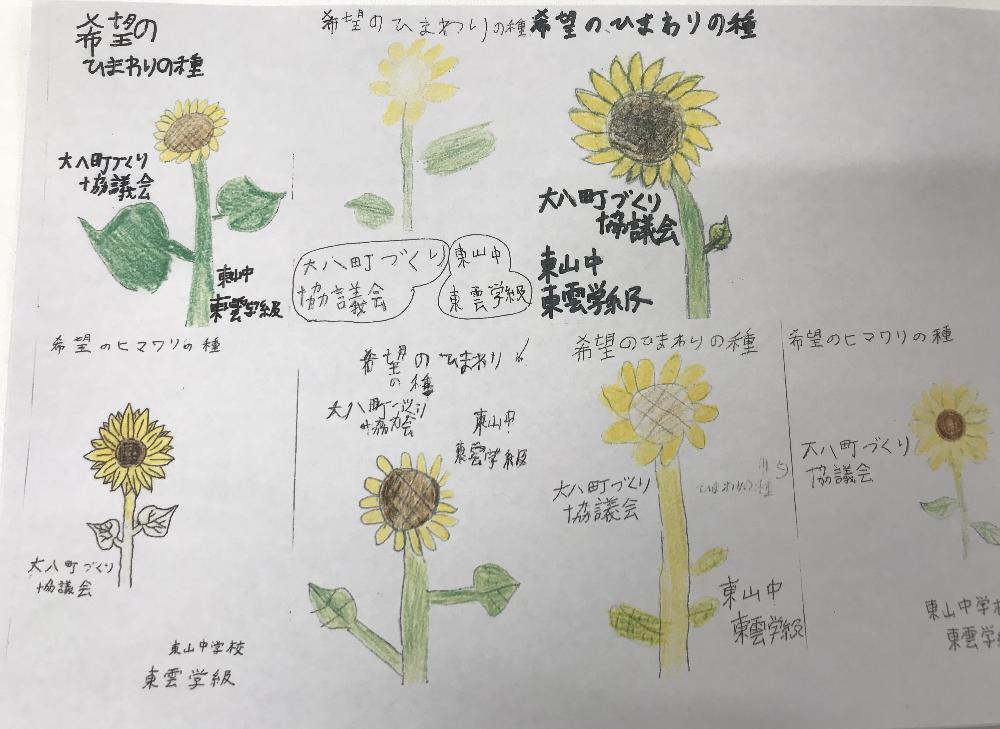 希望の
ひまわりの種
大八町づくり
協議会
東山中
東雲学級
希望のひまわりの種
大八町づくり
協議会
東山中
東雲学級
希望のひまわりの種
大八町づくり
協議会
東山中
東雲学級
希望のヒマワリの種
大八町づくり
協議会
東山中学校
東雲学級
希望のひまわり
の種
大八町づくり
東山中
東雲学級
希望のひまわりの種
大八町づくり
協議会
ひまわりの種
東山中
東雲学級
希望のヒマワリの種
大八町づくり
協議会
東山中学校
東雲学級